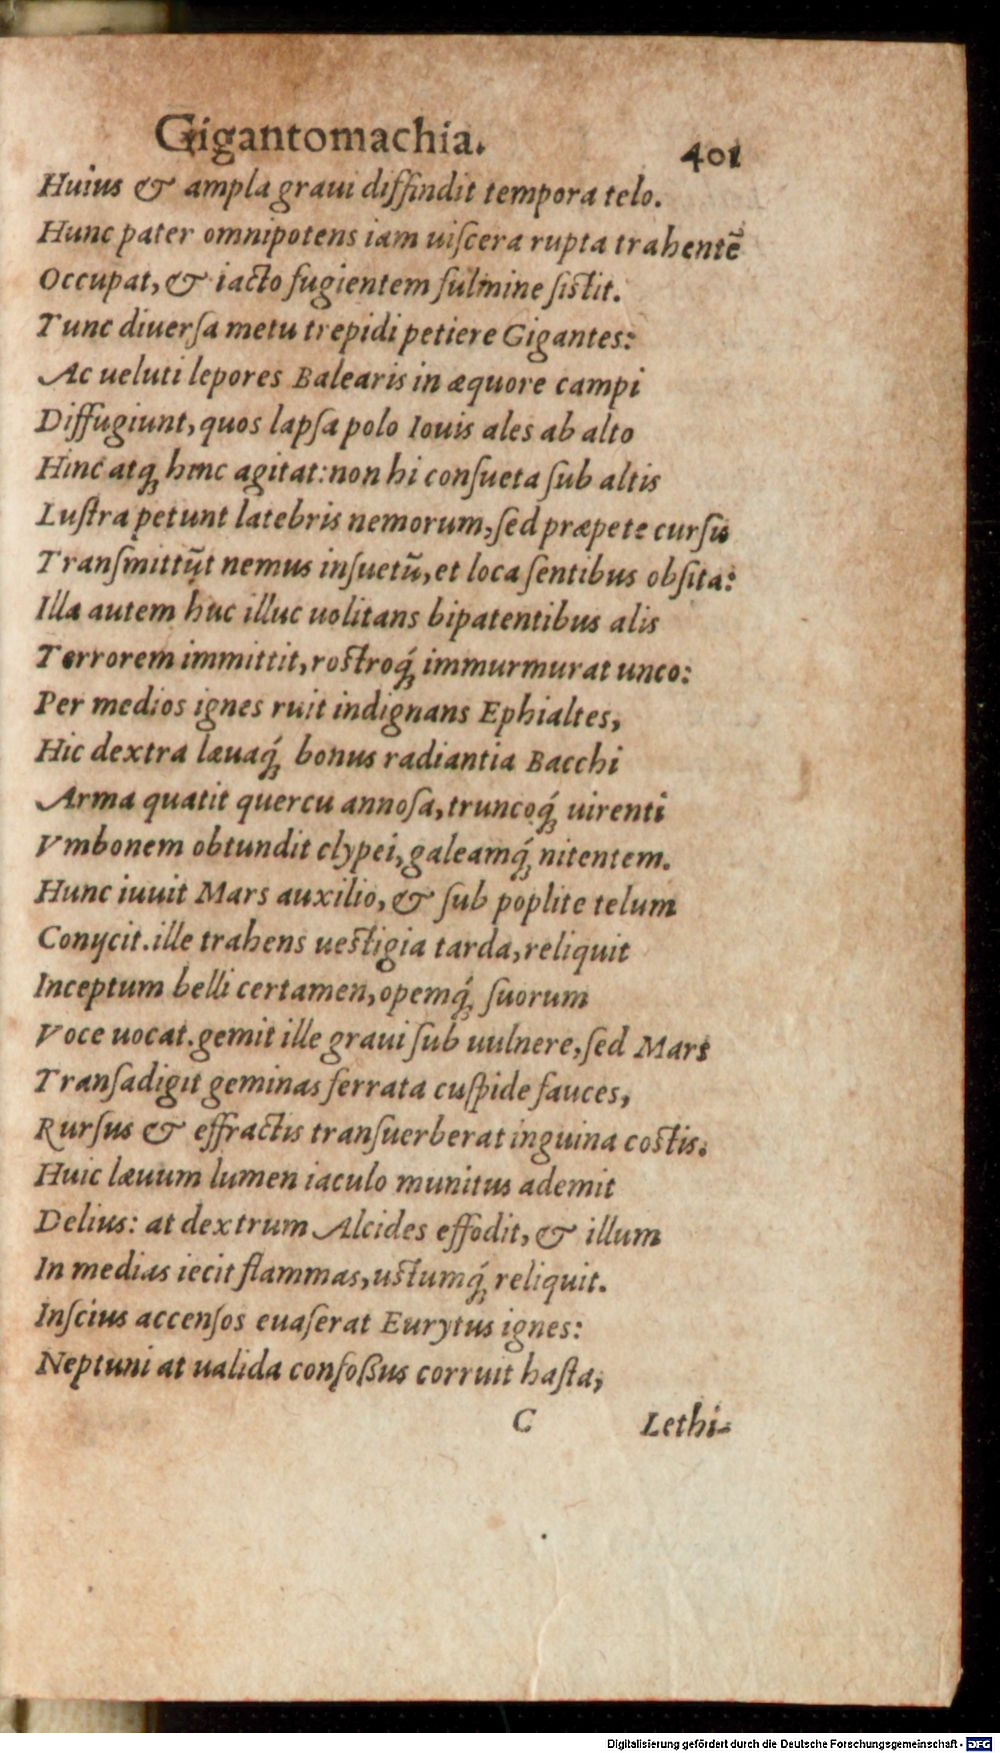 Gigantomachia. 401
Huius & ampla graui diffindit tempora telo.
Hunc pater omnipotens iam uiſcera rupta trahentē
Occupat, & iacto fugientem fulmine ſistit.
Tunc diuerſa metu trepidi petiere Gigantes:
Ac ueluti lepores Balearis in æquore campi
Diffugiunt, quos lapſa polo Iouis ales ab alto
Hinc atq; hinc agitat: non hi conſueta ſub altis
Luſtra petunt latebris nemorum, ſed præpete curſu
Tranſmittūt nemus inſuetū, et loca ſentibus obſita:
Illa autem huc illuc uolitans bipatentibus alis
Terrorem immittit, roſtroq́; immurmurat unco:
Per medios ignes ruit indignans Ephialtes,
Hic dextra læuaq́; bonus radiantia Bacchi
Arma quatit quercu annoſa, truncoq́; uirenti
Vmbonem obtundit clypei, galeamq́; nitentem.
Hunc iuuit Mars auxilio, & ſub poplite telum
Conijcit. ille trahens ueſtigia tarda, reliquit
Inceptum belli certamen, opemq́; ſuorum
Voce uocat. gemit ille graui ſub uulnere, ſed Mars
Tranſadigit geminas ferrata cuſpide fauces,
Rurſus & effractis tranſuerberat inguina coſtis.
Huic læuum lumen iaculo munitus ademit
Delius: at dextrum Alcides effodit, & illum
In medias iecit flammas, uſtumq́; reliquit.
Inſcius accenſos euaſerat Eurytus ignes:
Neptuni at ualida confoßus corruit haſta,
C Lethi-
Digitalisierung gefördert durch die Deutsche Forschungsgemeinschaft - DFG